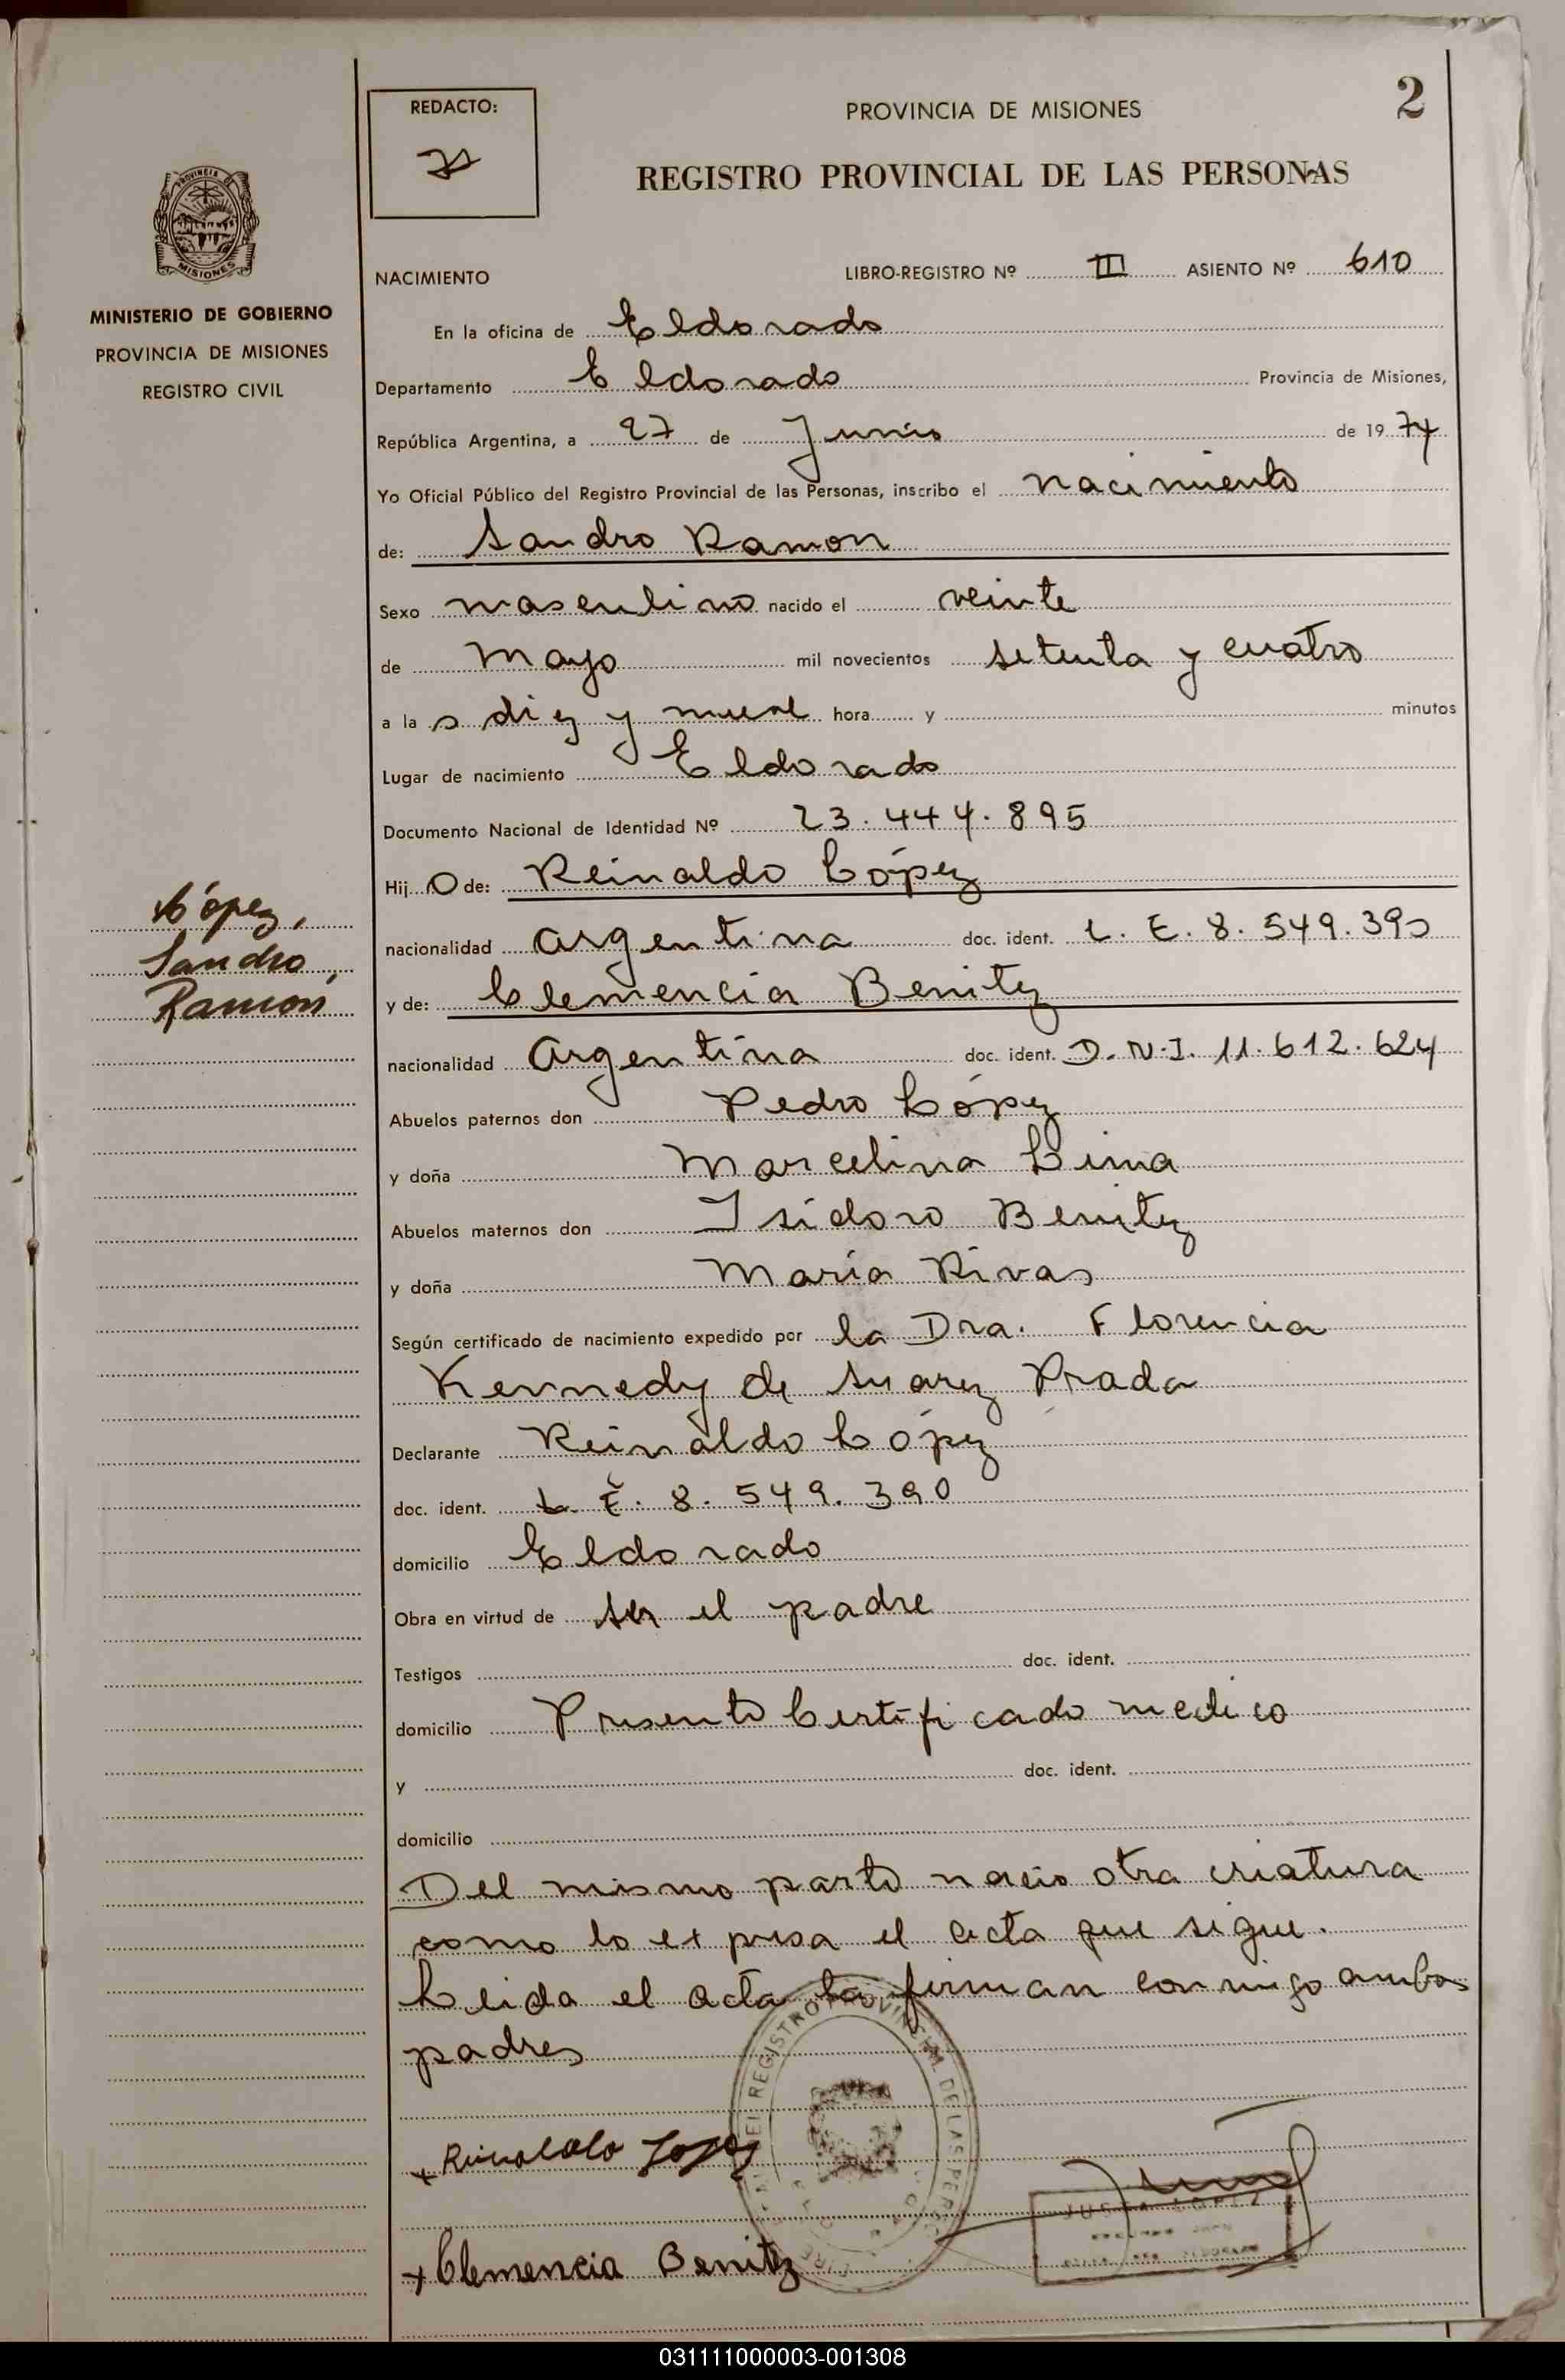 2
REDACTO:
PROVINCIA DE MISIONES
REGISTRO PROVINCIAL DE LAS PERSONAS
MISIONES
MINISTERIO DE GOBIERNO
PROVINCIA DE MISIONES
REGISTRO CIVIL
NACIMIENTO LIBRO-REGISTRO Nº III ASIENTO Nº 610
En la oficina de Eldorado
Departamento Eldorado Provincia de Misiones,
República Argentina, a 27 de Junio de 1974
Yo Oficial Público del Registro Provincial de las Personas, inscribo el nacimiento
de: Sandro Ramon
Sexo masculino nacido el veinte
de Mayo mil novecientos setenta y cuatro
a las diez y nueve hora y minutos
Lugar de nacimiento Eldorado
Documento Nacional de Identidad Nº 23.444.895
Hijo de: Reinaldo López
López,
Sandro,
Ramón
nacionalidad argentina doc. ident. L. E. 8.549.390
y de: Clemencia Benitez
nacionalidad argentina doc. ident. D.N.I. 11.612.624
Abuelos paternos don Pedro López
y doña Marcelina Lima
Abuelos maternos don Isidoro Benitez
y doña María Rivas
Según certificado de nacimiento expedido por la Dra. Florencia
Kennedy de Suarez Prada
Declarante Reinaldo López
doc. ident. L. E. 8.549.390
domicilio Eldorado
Obra en virtud de ser el padre
Testigos doc. ident.
domicilio Presento Certificado medico
y doc. ident.
domicilio
Del mismo parto nacio otra criatura
como lo expresa el acta que sigue.
Leida el acta la firman conmigo ambos
padres
REGISTRO PROVINCIAL DE LAS PERS
+ Reinaldo Lopez
JUSTA LOPEZ
+ Clemencia Benitez
031111000003-001308